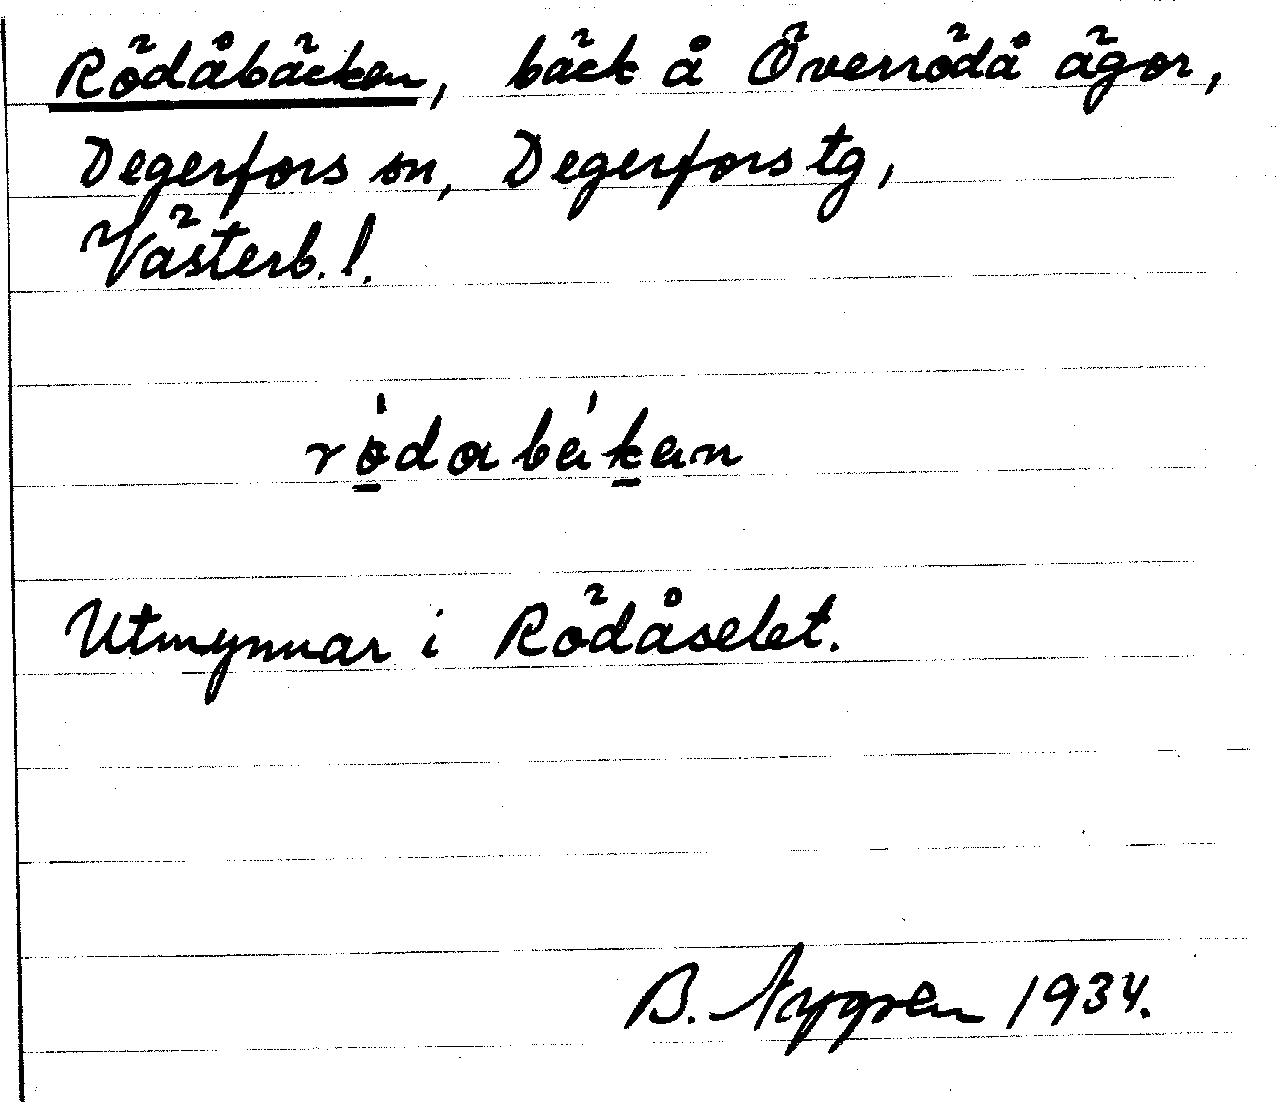 Rödåbäcken, bäck å Överrödå ägor,
Degerfors sn, Degerfors tg,
Västerb. l.
Utmynnar i Rödåselet.
B. Nygren 1934.